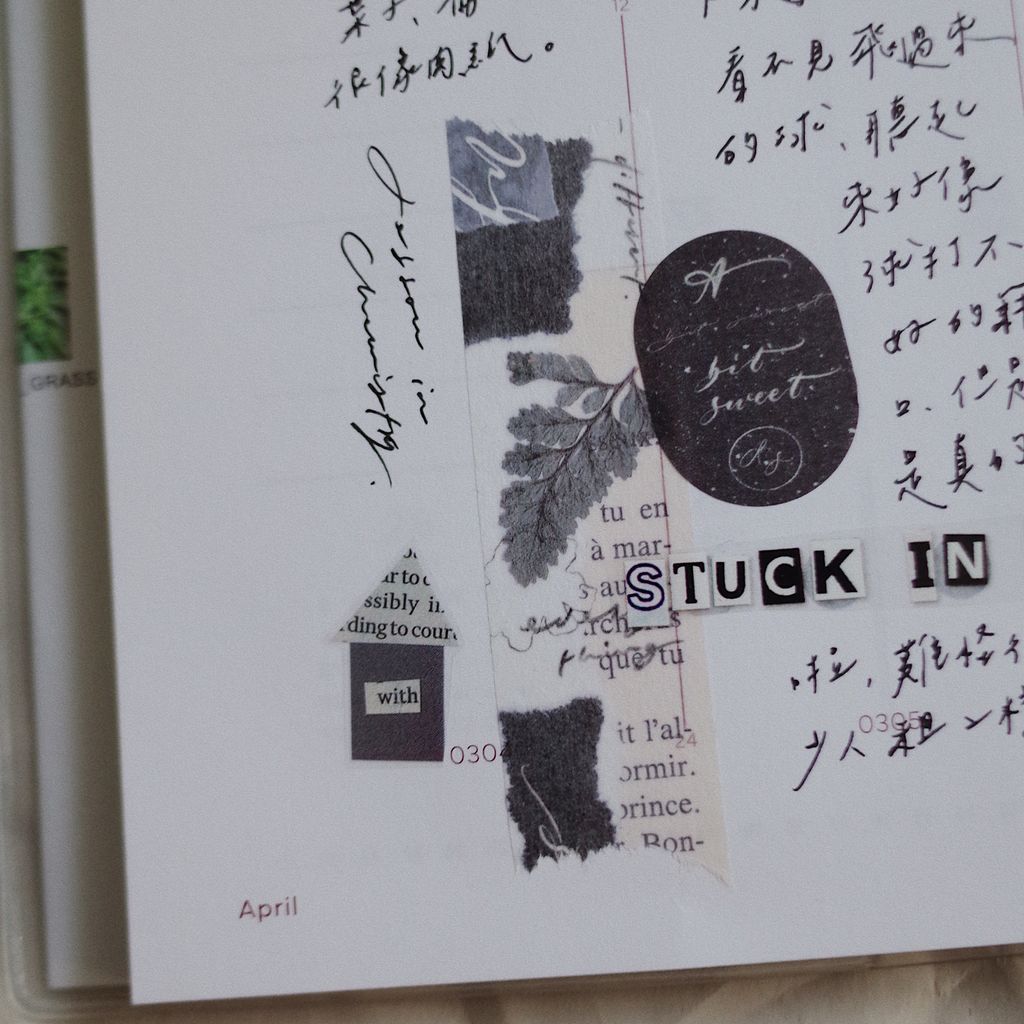 很像肉紙。
Lesson in
Chemistry.
GRASS
ur to c
ssibly in
ding to cour
with
0304
April
12
tu en
à mar-
s au
rch
que tu
24
it l'al-
ormir.
prince.
r. Bon-
看不見飛過來
的球、聽起
來好像
球打不
好的
口、但是
是真的
A
bit
sweet.
STUCK IN
啦，難怪
0305
少人粗心